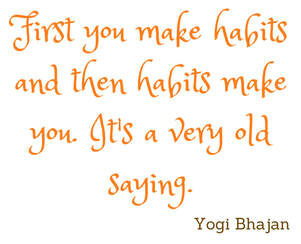 First you make habits
and then habits make
you. It's a very old
saying.
Yogi Bhajan